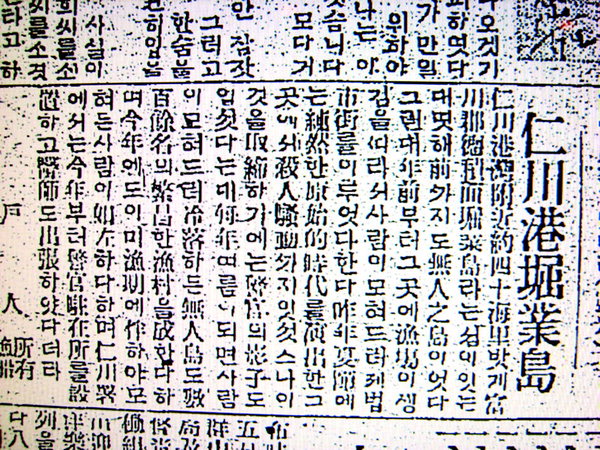 피하엿다
가만일
위하야
나는아
것습니다
모다거
그리고
안잠잣
한숨을
사실이
타고하
仁川港堀業島
仁川港灣附近約四十海里밧게富
川郡德積面堀業島라는섬이잇는
대몃해前까지도無人之島이엿다
그런대年前부터그곳에漁場이생
김을따라서사람이모혀드러제법
市街를이루엇다한다昨年夏節에
는純然한原始的時代를演出한그
곳에서殺人騷動까지잇섯스나이
것을取締하기에는警官의影子도
업섯다는데每年여름이되면사람
이모혀드러冷落하든無人島도數
百餘名의繁昌한漁村을成한다하
며今年에도이미漁期에作하야모
혀든사람이如左하다하며仁川署
에서는今年부터警官駐在所를設
置하고醫師도出張하얏다더라
戶 人 所有漁船
列을
다八